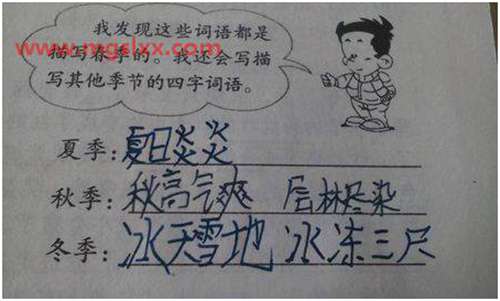 我发现这些词语都是
www.mgslxx.com
描写春季的。我还会写描
写其他季节的四字词语。
夏季：夏日炎炎
秋季：秋高气爽 层林尽染
冬季：冰天雪地 冰冻三尺